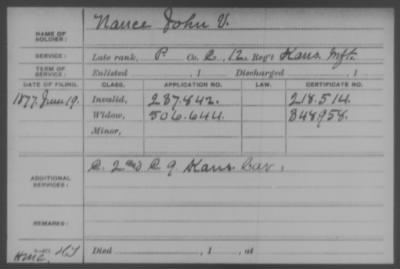 NAME OF SOLDIER: Nance John V.
SERVICE: Late rank, P Co. C, 12 Reg't Kans Inft.
TERM OF SERVICE: Enlisted , 1 Discharged , 1
DATE OF FILING. CLASS. APPLICATION NO. LAW. CERTIFICATE NO.
1877. June 19. Invalid, 237.842. 218.514.
Widow, 506.644. 348958.
Minor,
C. 2nd C 9 Kans Cav.
ADDITIONAL SERVICES:
REMARKS:
Died , 1 , at